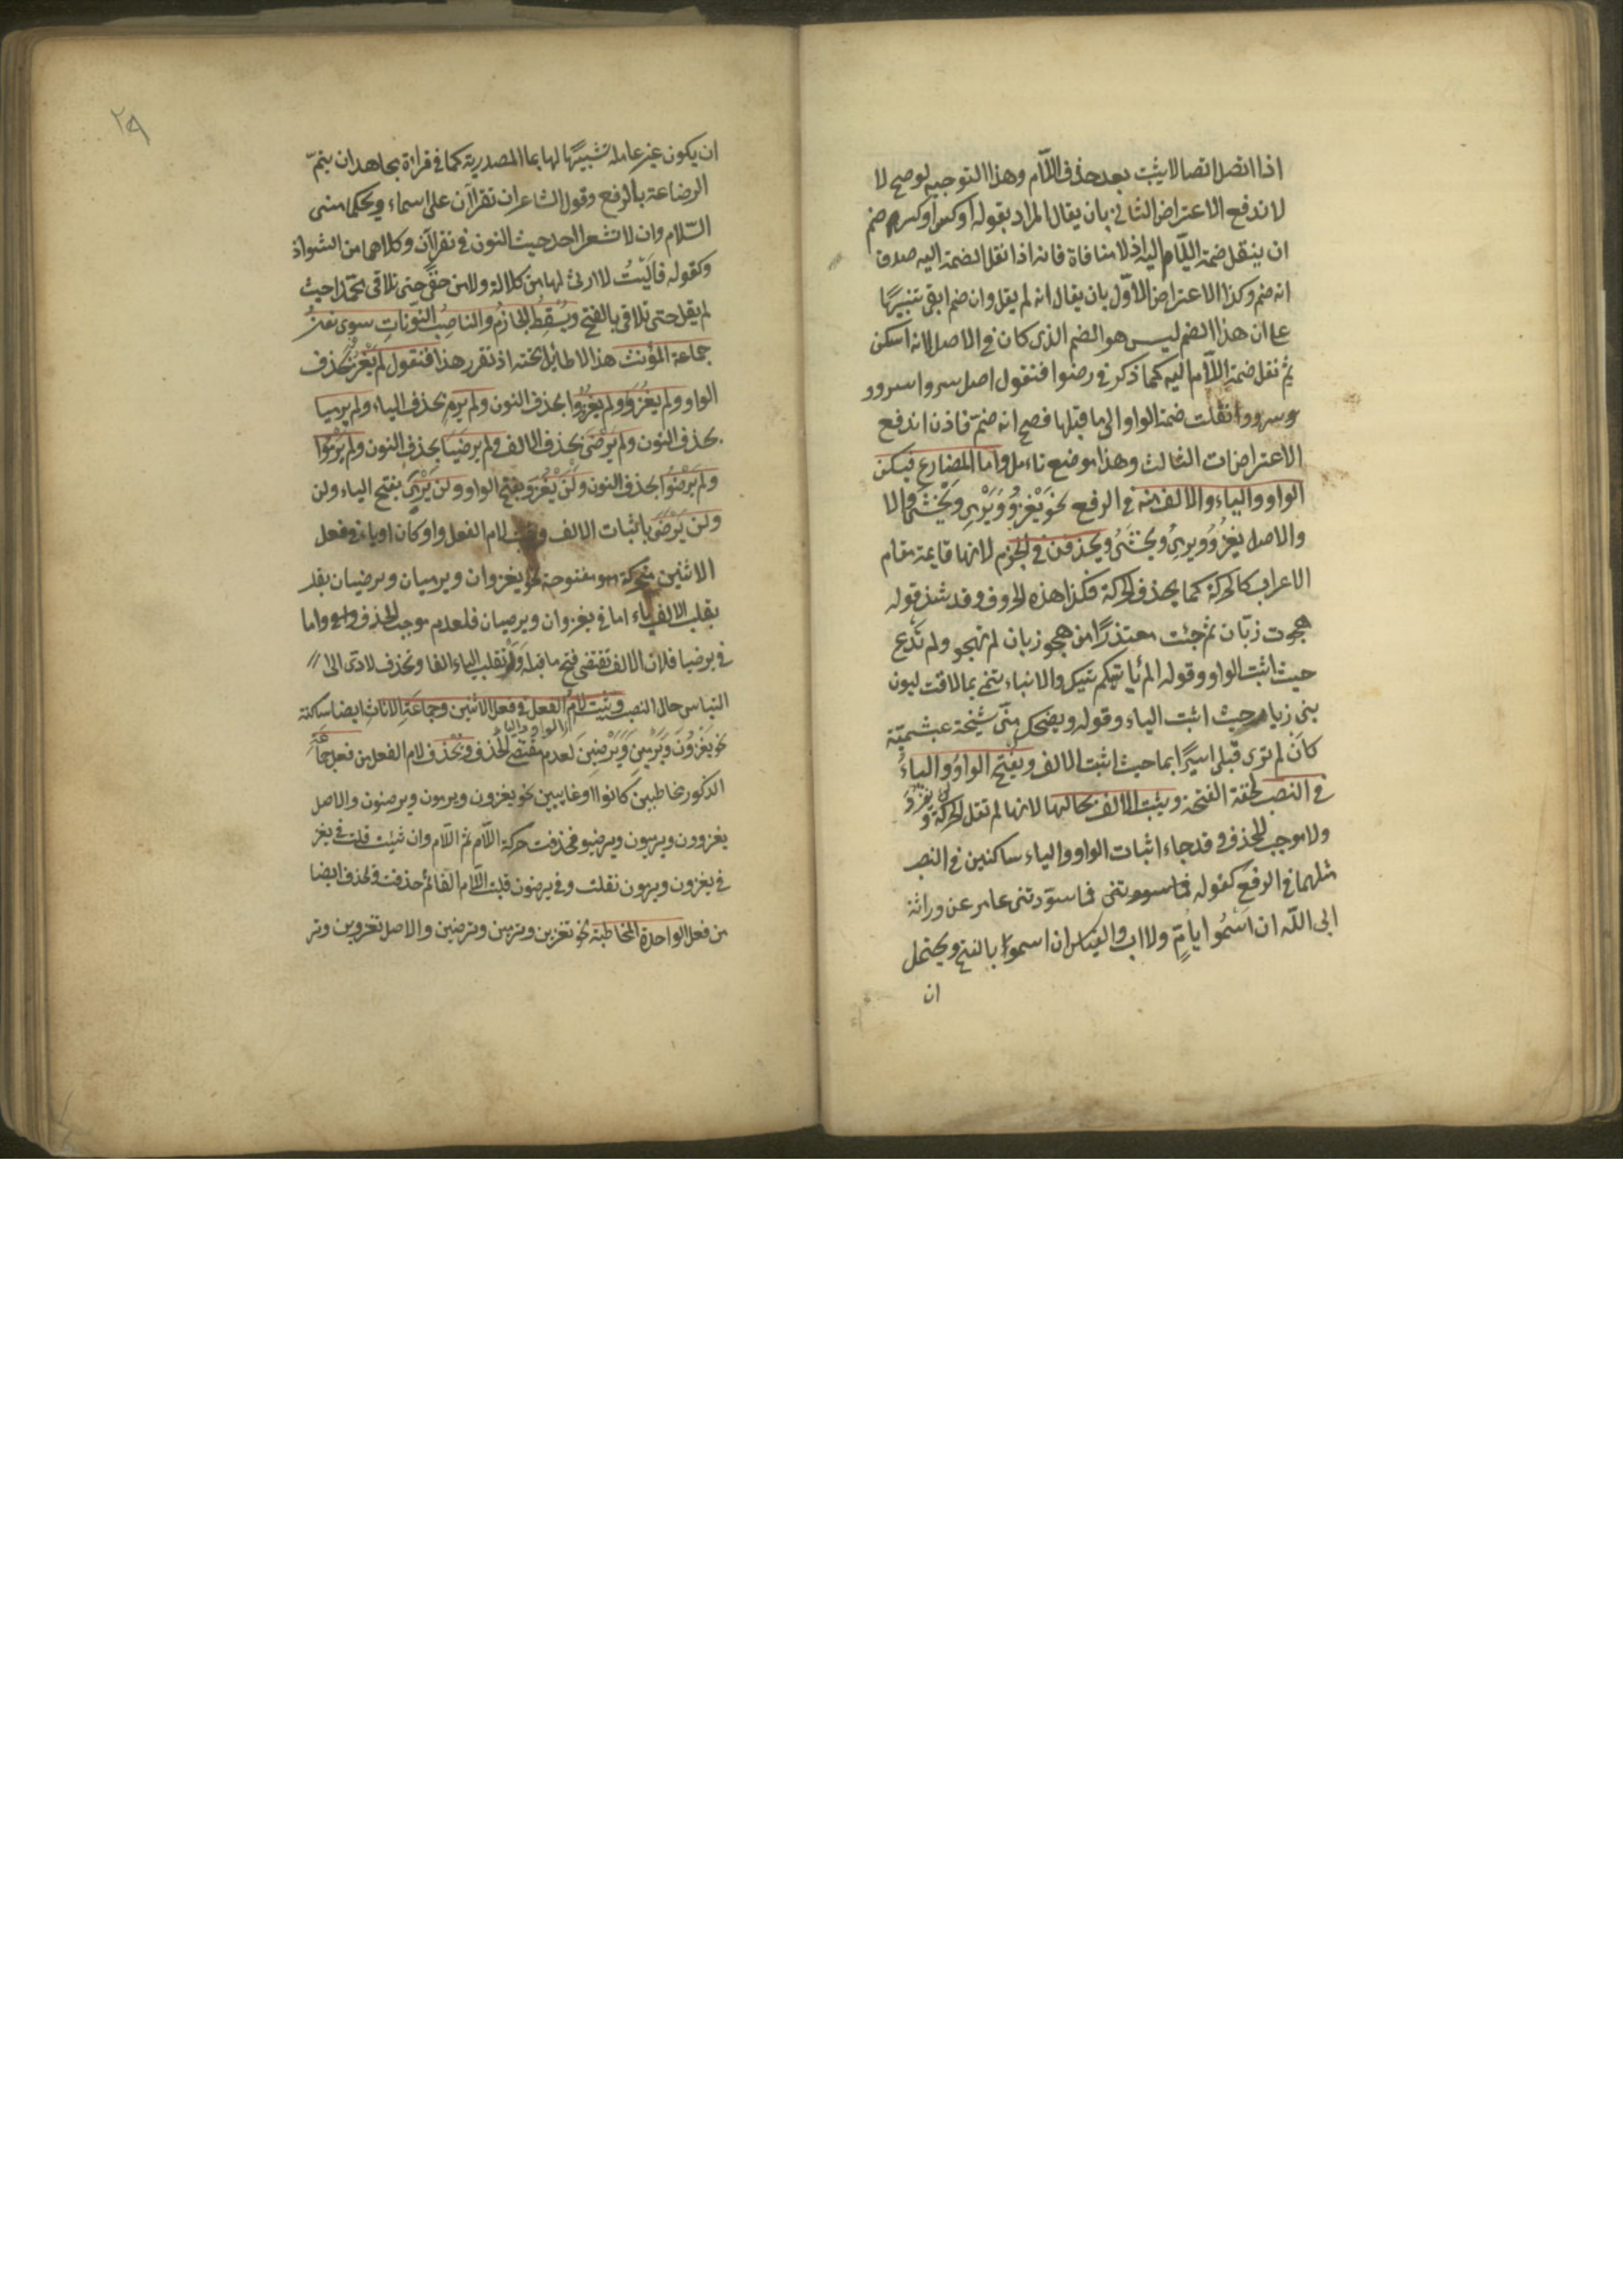 اذا اتصل اتصالا يثبت بعد حذف اللّام وهذا التوجيه لو صح لا
لاندفع الاعتراض الثانى بان يقال المراد بقوله او كسر او كسر ضم
ان ينقل ضمة اللّام اليه اذ لا منافاة فانه اذا نقل الضمة اليه صدق
انه ضم وكذا الاعتراض الاوّل بان يقال انه لم يقل وان ضم ابقى تنبيهًا
على ان هذا الضم ليس هو الضم الذى كان فى الاصل لانه اسكن
ثم نقل ضمة اللّام اليه كما ذكر فى رضوا فنقول اصل سروا سروو
وسرووا نقلت ضمة الواو الى ما قبلها فصح انه ضمّ فاذن اندفع
الاعتراضات الثالث وهذا موضع تاءمل واما المضارع فيسكن
الواو والياء والالف منه فى الرفع نحو يَغْزُو وَيَرْمِى وَيَخْشَى والا
والاصل يغزُوُ ويرمىُ ويخشَىُ ويحذفن فى الجزم لانها قايمة مقام
الاعراب كالحركة كما يحذف الحركة فكذا هذه الحروف وقد شذ قوله
هجوت زبّان ثم جئت معتذرًا من هجو زبان لم تهجو ولم تدَع
حيث اثبت الواو وقوله الم يأتيكم تيك والانباء تنمى بما لاقت لبون
بنى زياد حيث اثبت الياء وقوله ويضحك منّى شيخة عبشميّة
كان لم ترى قبلى اسيرًا يما حيث اثبت الالف ويفتح الواوُ والياءُ
فى النصب لخفة الفتحة ويثبت الالف بحالها لانها لم تقبل الحركة
لن يغزوَ
ولا موجب للحذف وقد جاء اثبات الواو والياء ساكنين فى النصب
مثلهما فى الرفع كقوله فما سودتنى عامر عن وراثة
ابى اللّه ان اَسْمُو بامٍّ ولا اب والقياس ان اسموَ بالفتح ويحتمل
ان
٢٩
ان يكون غير عامله تشبيهًا لها بما المصدرية كما فى قراءة مجاهد ان يتمّ
الرضاعة بالرفع وقول الشاعر ان تقرآن على اسماء ويحكما منى
السّلام وان لا تشعر احد حيث النون فى تقرآن وكلاهما من الشواذ
وكقوله فآليْتُ لا ارثى لها من كلالة ولا من حفى حتى تلاقى محمّدا حيث
لم يقل حتى تلاقى بالفتح ويُسْقِطُ الجازمُ والناصِبُ النّوناتِ سوى نونُ
جماعة المؤنث هذا لا طائل تحته اذ تقرر هذا فنقول لم يَغْزُ بحذف
الواو ولم يغزُوَا ولم يَغْزُوا بحذف النون ولم يَرْمِ بحذف الياء ولم يرميا
بحذف النون ولم يَرْضَ بحذف الالف ولم يرضَيَا بحذف النون ولم يَرْمُوا
ولم يَرْضَوْا بحذف النون ولن يَغْزُوَ بفتح الواو ولن يَرْمِىَ بفتح الياء ولن
ولن يَرْضَى باثبات الالف ويثبت لام الفعل واو كان او ياء فى فعل
الاثنين متحركة مفتوحة نحو يغزوان ويرميان ويرضيان بقلب
بقلب الالف ياء اما فى يغزوان ويرميان فلعدم موجب الحذف واما
فى يرضيا فلان الالف تقتضى فتح ما قبله ولو تقلب الياء الفا وتحذف لادى الى
التباس حال النصب ويثبت لامُ الفعل فى فعل الاثنين وجماعَةِ الاناثِ ايضا ساكنة
الواو والياء
نحو يَغْزُونَ وَيَرْمِينَ وَيَرْضَيْنَ لعدم مقتضى الحذف ويُحْذَف لام الفعل من فعل جماعة
الذكور مخاطبين كانوا او غايبين نحو يغزون ويرمون ويرضون والاصل
يغزوون ويرميون ويرضيو فحذفت حركة اللّام ثم اللّام وان شئت قلت فى يغز
فى يغزون ويرمون نقلت وفى يرضون قلبت اللّام الفا ثم حذفت ويحذف ايضا
من فعل الواحدة المخاطبة نحو تغزين وترمين وترضين والاصل تغزوين وتر